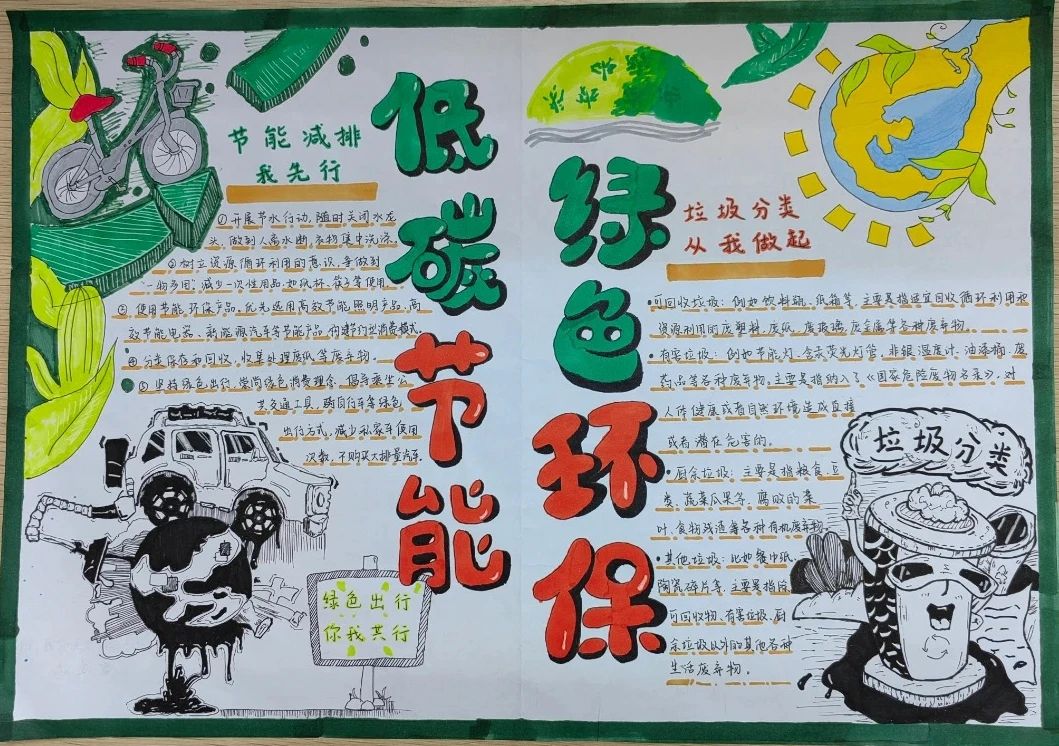 低碳节能
绿色环保
节能减排
我先行
①开展节水行动,随时关闭水龙
头,做到人离水断,衣物集中洗涤。
②树立资源循环利用的意识,争做到
"一物多用",减少一次性用品,如纸杯、筷子等使用
③使用节能环保产品,优先选用高效节能照明产品、高
效节能电器、新能源汽车等节能产品,构建节约型消费模式。
④分类保存和回收,收集处理废纸等废弃物。
⑤坚持绿色出行,崇尚绿色消费理念,倡导乘坐公
共交通工具,骑自行车等绿色
出行方式,减少私家车使用
次数,不购买大排量汽车。
绿色出行
你我共行
垃圾分类
从我做起
•可回收垃圾:例如饮料瓶、纸箱等,主要是指适宜回收循环利用和
资源利用的废塑料、废纸、废玻璃、废金属等各种废弃物。
•有害垃圾:例如节能灯、含汞荧光灯管、非银温度计、油漆桶、废
药品等各种废弃物,主要是指纳入了《国家危险废物名录》,对
人体健康或者自然环境造成直接
或者潜在危害的。
•厨余垃圾:主要是指粮食、豆
类、蔬菜瓜果等,腐败的菜
叶、食物残渣等各种有机废弃物
•其他垃圾:比如餐巾纸、
陶瓷碎片等,主要是指除
可回收物、有害垃圾、厨
余垃圾以外的其他各种
生活废弃物。
垃圾分类